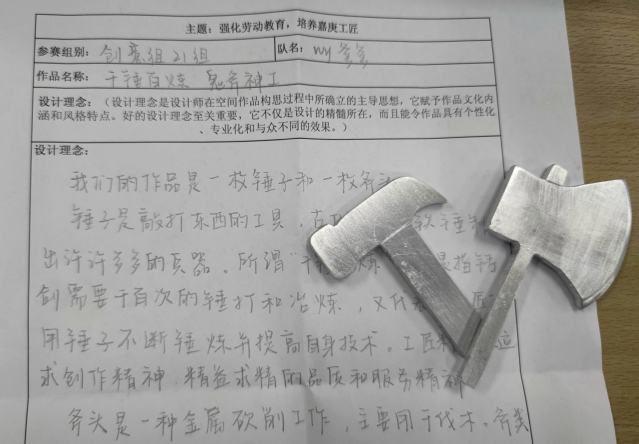 主题：强化劳动教育，培养嘉庚工匠
参赛组别：创意组21组 队名：
作品名称：千锤百炼 鬼斧神工
设计理念：（设计理念是设计师在空间作品构思过程中所确立的主导思想，它赋予作品文化内
涵和风格特点。好的设计理念至关重要，它不仅是设计的精髓所在，而且能令作品具有个性化
、专业化和与众不同的效果。）
设计理念：
我们的作品是一枚锤子和一枚斧头
锤子是敲打东西的工具，古 铁锤
出许许多多的兵器。所谓“千 炼 是指铸
剑需要千百次的锤打和冶炼，又代 匠
用锤子不断锤炼并提高自身技术。工匠 追
求创作精神 精益求精的品质和服务精神
斧头是一种金属砍削工作，主要用于伐木。斧类